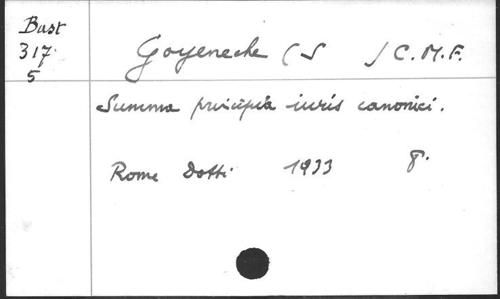 Bast
317
5
Goyeneche (S ) C.M.F.
Summa principia iuris canonici.
Rome Dotti 1933 8°.